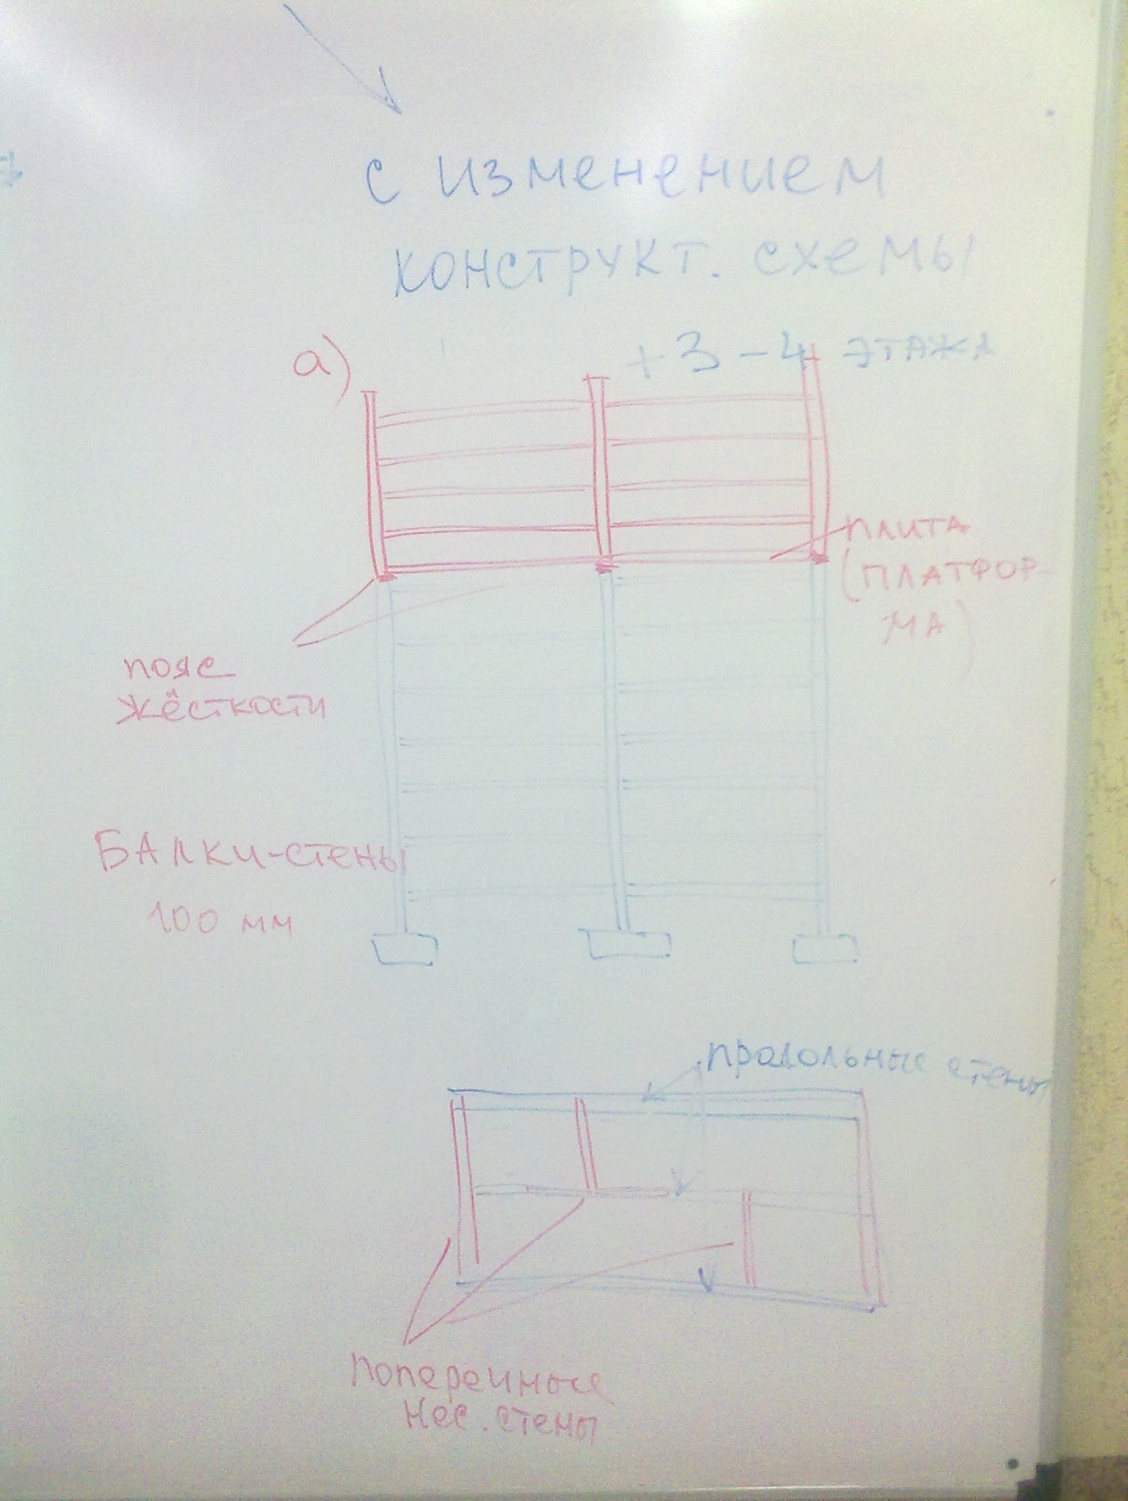 с изменением
конструкт. схемы
а)
+3-4 этажа
плита
(платфор
ма)
пояс
жёсткости
Балки-стены
100 мм
продольные стены
поперечные
нес. стены